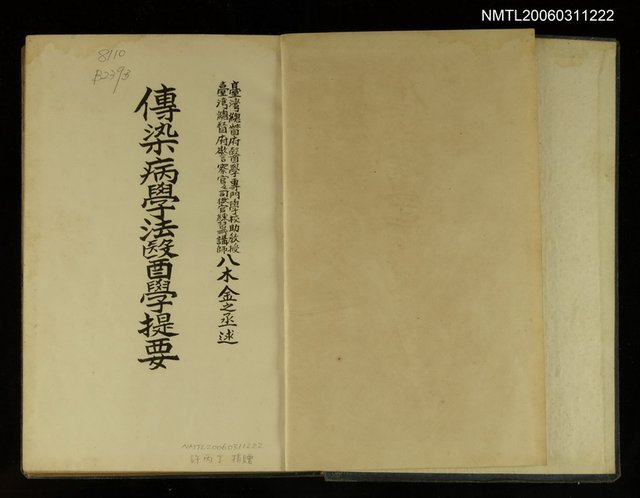 NMTL20060311222
8110
B2393
臺灣總督府醫學專門學校助教授
臺灣總督府警察官及司獄官練習所講師
八木金之丞述
傳染病學法醫學提要
NMTL20060311222
許丙丁 捐贈